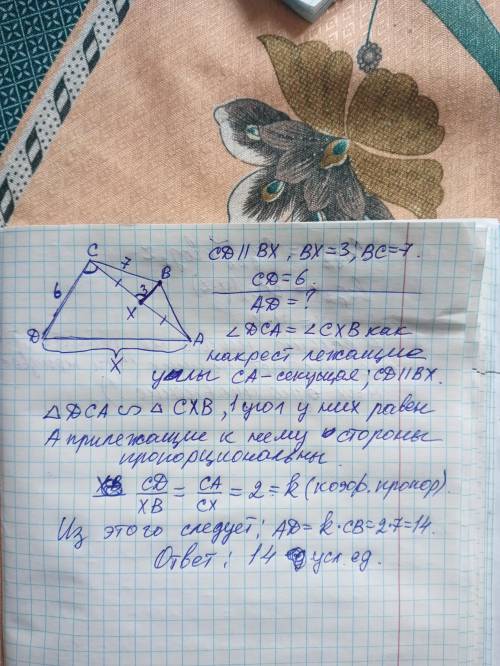 C
7
B
CD || BX, BX=3, BC=7.
CD=6.
6
3
X
AD=?
D
A
X
∠DCA = ∠CXB как
накрест лежащие
углы CA-секущая; CD||BX.
△DCA ∽ △CXB, 1 угол у них равен
А прилежащие к нему стороны
пропорциональны.
CD/XB = CA/CX = 2 = k (коэф. пропор).
Из этого следует: AD = k·CB=2·7=14.
Ответ: 14 усл.ед.